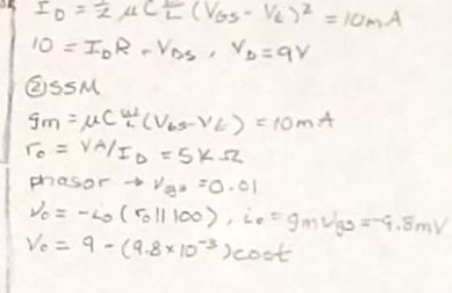 I_D = 1/2 μC W/L (V_GS - V_t)² = 10mA
10 = I_D R - V_DS, V_D = 9V
②SSM
gm = μC W/L (V_GS - V_t) = 10mA
r_o = VA/I_D = 5KΩ
phasor → V_gs = 0.01
V_o = -i_o (r_o || 100), i_o = gm V_gs = -9.8mV
V_o = 9 - (9.8×10⁻³)cost